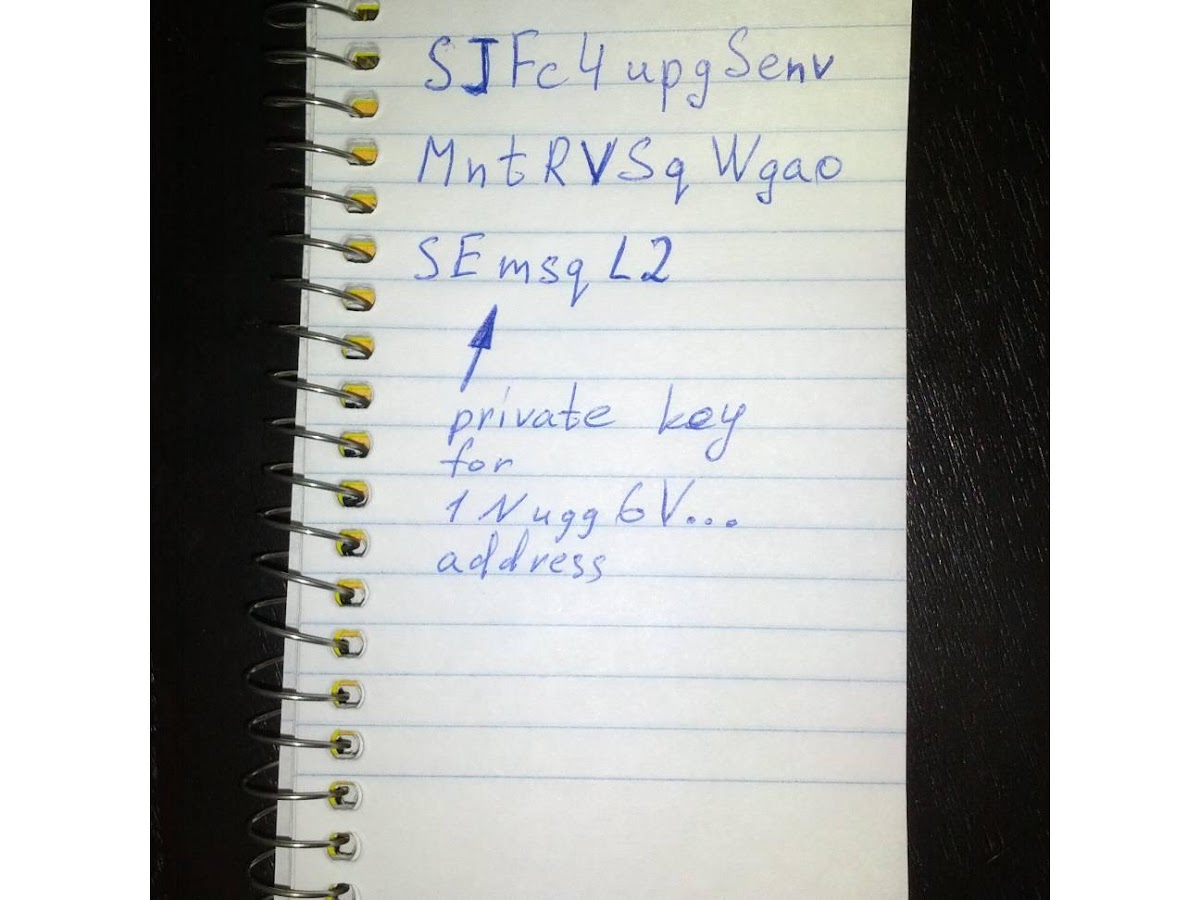 SJFc4upgSenv
MntRVSqWgao
SEmsqL2
private key
for
1Nugg6V...
address